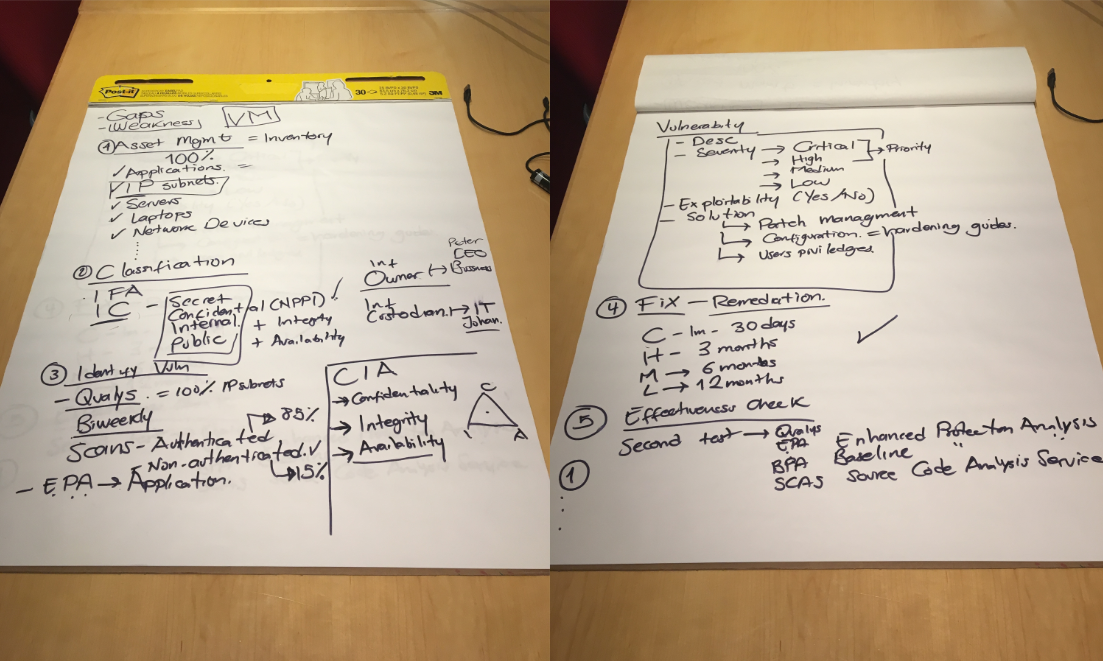 Post-it
30
3M
- Gaps
- (Weakness)
VM
① Asset Mgmt = Inventory
100%
✓ Applications. =
✓ IP subnets.
✓ Servers
✓ Laptops
✓ Network Devices
② Classification
IFA
IC - Secret
Confidential (NPPI)
Internal.
Public
+ Integrity
+ Availability
✓
Int
Owner ↔ Bussness
Peter
CEO
Int
Custodian. → IT
Johan.
③ Identify Vuln
- Qualys. = 100% IP subnets
Biweekly
→ 85%
Scans - Authenticated
Non-authenticated. ✓
↳ 15%
- EPA → Application.
CIA
→ Confidentiality
→ Integrity
→ Availability
C
I
A
Vulnerabity
- Desc
- Severity → Critical
→ High
→ Medium
→ Low
→ Priority
- Exploitability (Yes/No)
- Solution
↳ Patch managment
↳ Configuration. = Hardening guides.
↳ Users priviledges.
④ Fix - Remedation.
C - 1m - 30 days
H - 3 months
M → 6 months
L → 12 months
✓
⑤ Effectiveness Check
Second test → Qualys
EPA Enhanced Protection Analysis
BPA Baseline " "
SCAS Source Code Analysis Service
①